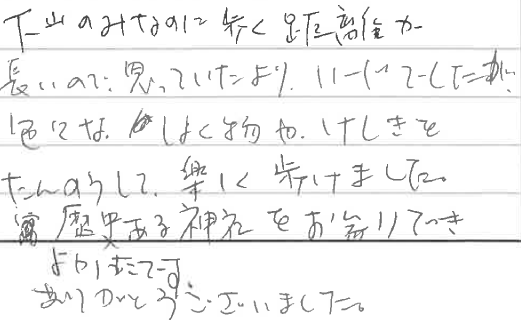 下山のみなのに歩く距離が
長いので、思っていたより、ハードでしたが、
色々な しょく物や、けしきを
たんのうして、楽しく歩けました。
歴史ある神社を お
よかったです
ありがとうございました。